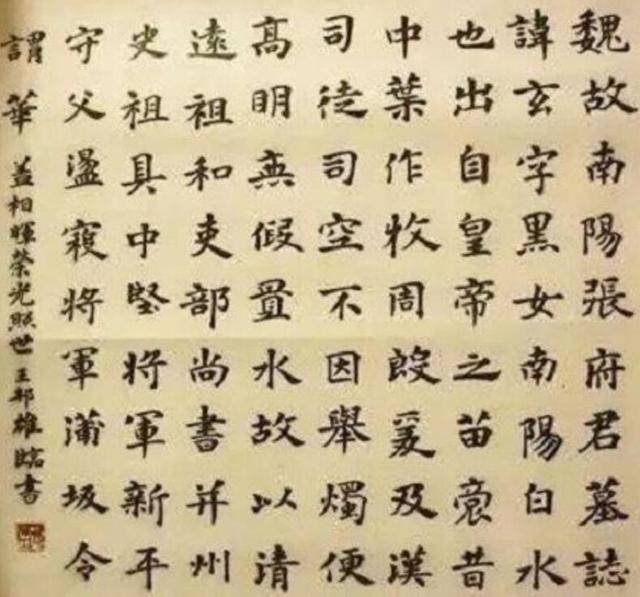 魏故南陽張府君墓誌
諱玄字黑女南陽白水
也出自皇帝之苗裔昔
中葉作牧周殷爰及漢
司徒司空不因舉燭便
髙明無假置水故以清
遠祖和吏部尚書并州
史祖具中堅将軍新平
守父盪寇将軍蒲坂令
謂華 蓋相暉榮光照世 王邦雄臨書